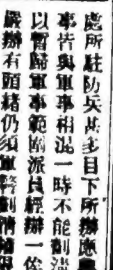 處所駐防兵甚多目下所辦應
事皆與軍事相混一時不能劃
以暫歸軍事範圍派員經辦一俟
嚴辦有頭緒仍須軍